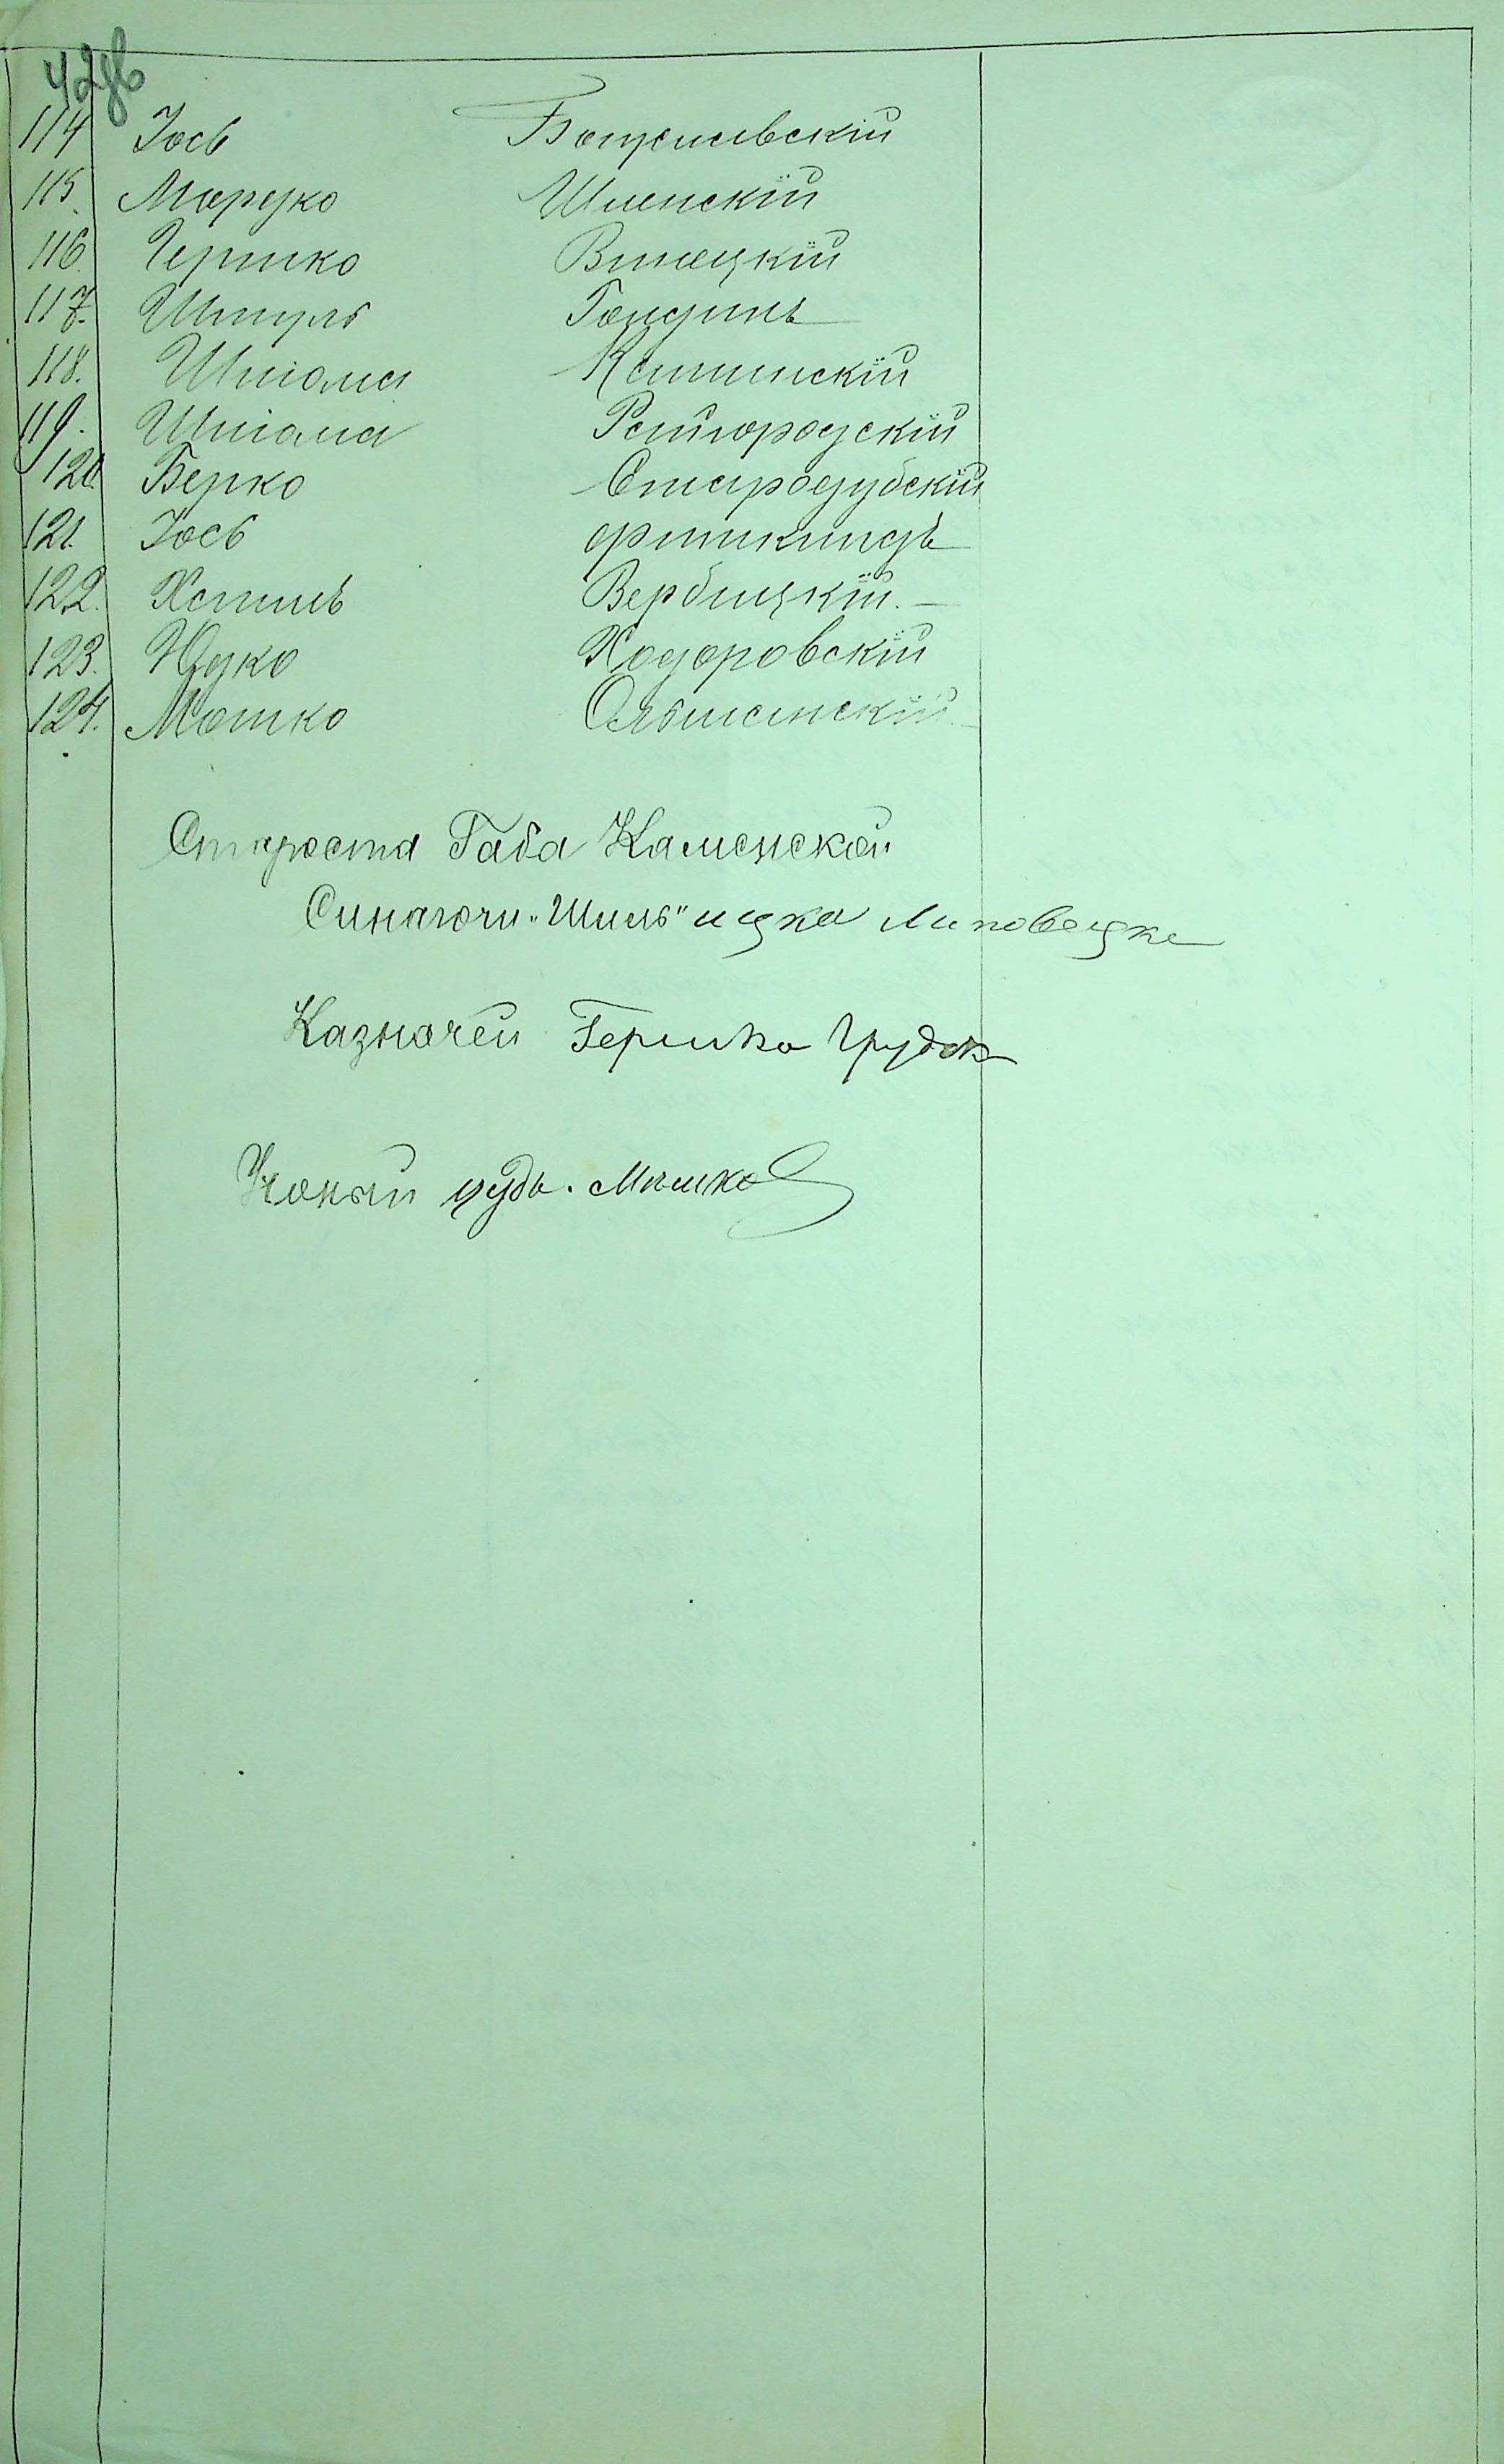 42об
114 Іось Богуславскій
115. Мордко Шпенскій
116. Гершко Винецкій
117. Шмуль Гондинъ
118. Шліома Каминскій
119. Шліома Ратгородскій
120. Берко Стародубскій
121. Іось
122. Хаимъ Вербицкій.
123. Юдко Ходоровскій
124. Мошко Ольшанскій
Староста Габа Каменской
Синагоги „Шиль" ицка Липовецке
Казначей Гершко Грудск
Ученый Мошко